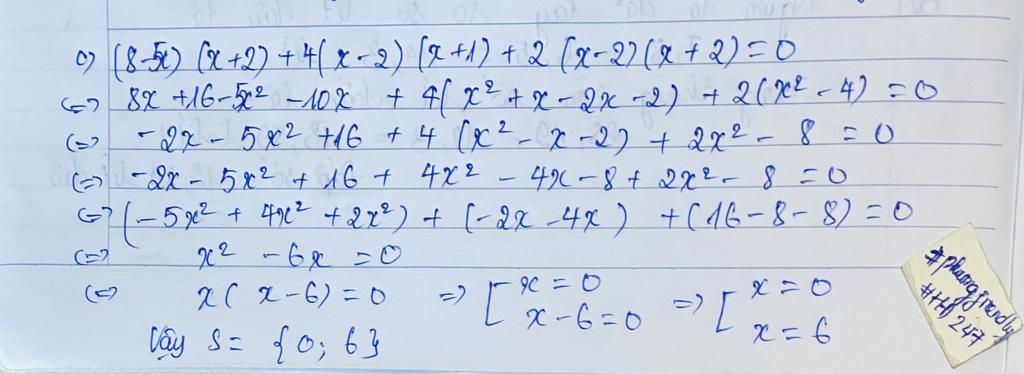 c) (8-5x) (x+2) + 4(x-2) (x+1) + 2 (x-2)(x+2) = 0
<=> 8x + 16 - 5x² - 10x + 4(x² + x - 2x - 2) + 2(x² - 4) = 0
<=> -2x - 5x² + 16 + 4 (x² - x - 2) + 2x² - 8 = 0
<=> -2x - 5x² + 16 + 4x² - 4x - 8 + 2x² - 8 = 0
<=> (-5x² + 4x² + 2x²) + (-2x - 4x) + (16 - 8 - 8) = 0
<=> x² - 6x = 0
<=> x( x-6) = 0 => [ x = 0 => [ x = 0
x - 6 = 0 x = 6
Vậy S = {0; 6}
#phuongfriendly
#HĐ247